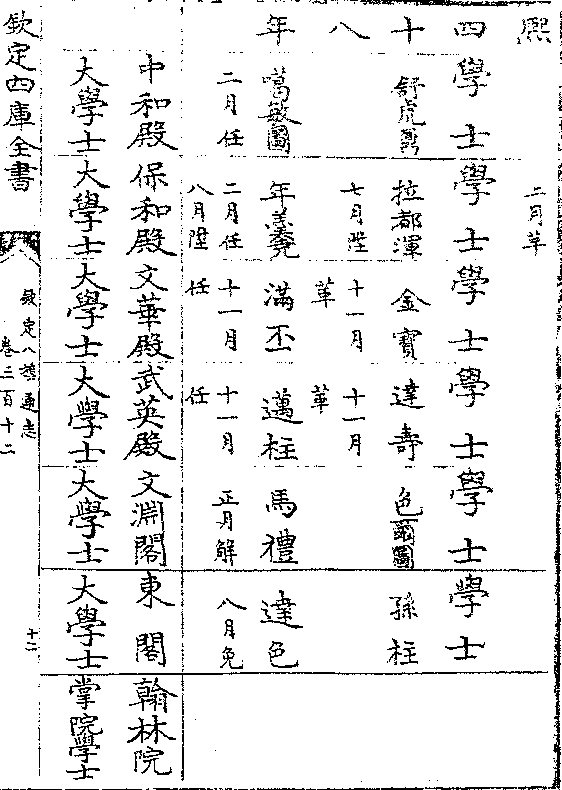 熙四十八年
二月革
學士 學士 學士 學士 學士 學士
舒虎 拉都渾 金寶 達壽 色爾圖 孫柱
七月陞 十一月 十一月
革 革
噶敏圖 年羹堯 滿丕 邁柱 馬禮 達色
二月任 二月任 十一月 十一月 正月解 八月免
八月陞 任 任
中和殿 保和殿 文華殿 武英殿 文淵閣 東閣 翰林院
大學士 大學士 大學士 大學士 大學士 大學士 掌院學士
欽定四庫全書
欽定八旗通志
卷三百十二
十二